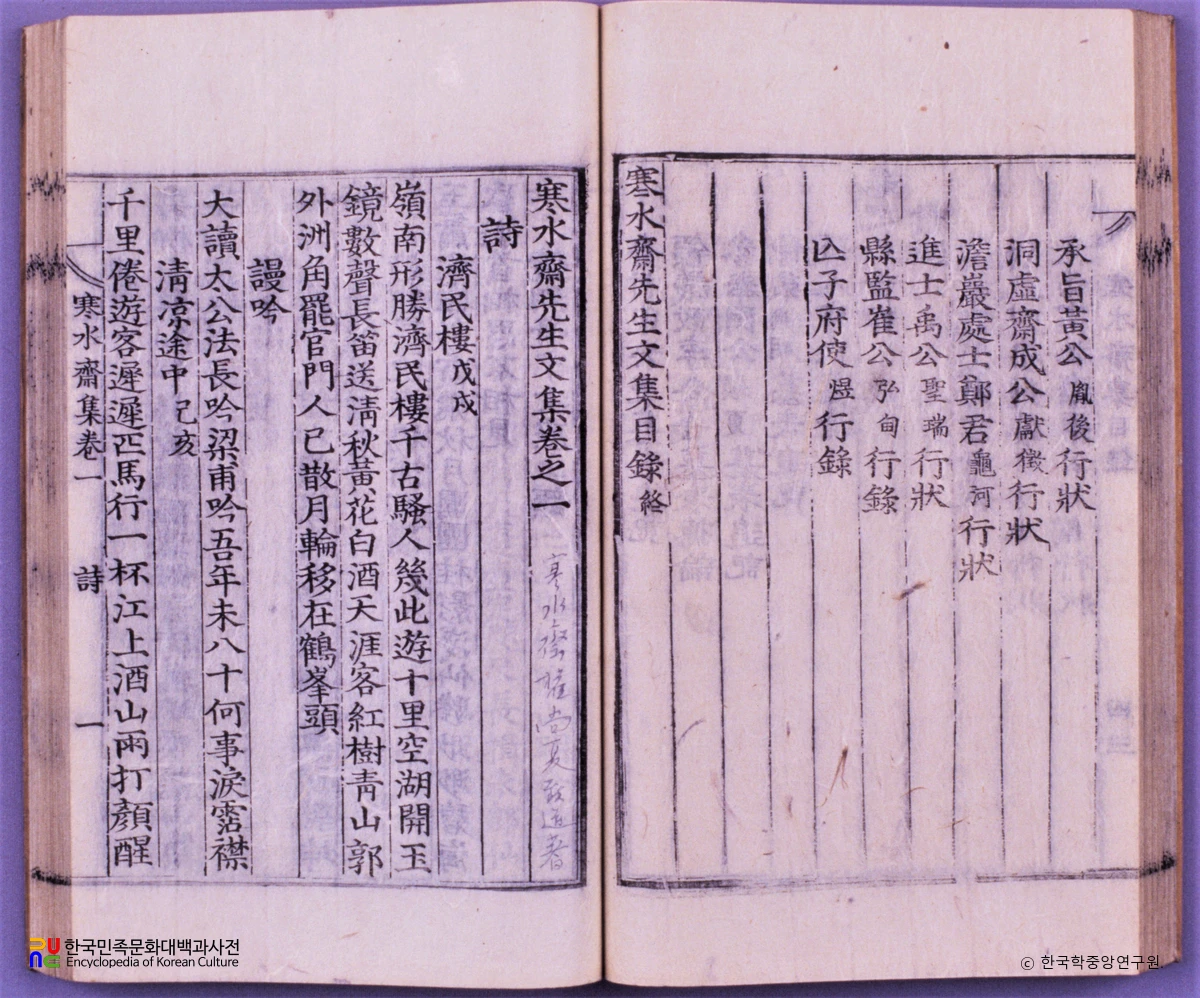 承旨黃公胤後行狀
洞虛齋成公獻徵行狀
澹巖處士鄭君龜河行狀
進士禹公聖瑞行狀
縣監崔公弘甸行錄
亾子府使煜行錄
寒水齋先生文集目錄終
寒水齋先生文集卷之一
寒水齋權尚夏致道著
詩
濟民樓戊戌
嶺南形勝濟民樓千古騷人幾此遊十里空湖開玉
鏡數聲長笛送淸秋黃花白酒天涯客紅樹靑山郭
外洲角罷官門人已散月輪移在鶴峯頭
謾吟
大讀太公法長吟梁甫吟吾年未八十何事淚霑襟
淸凉途中己亥
千里倦遊客遲遲匹馬行一杯江上酒山雨打顏醒
寒水齋集卷一 詩 一
한국민족문화대백과사전
Encyclopedia of Korean Culture
© 한국학중앙연구원.